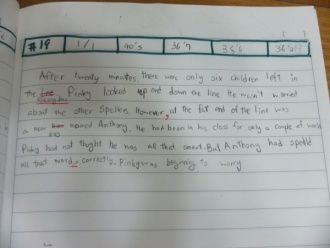 #19 1/1 40's 36'7 38'6
After twenty minutes there was only six children left in
the Pinky looked up and down the line He wasn't worried
about the other Spellers However, at the far end of the line was
a new named Anthony, He had been in his class for only a couple of week
Pinky had not thught he was all that smart. But Anthony had spelld
all that word correctic, Pinky was beginning to worry